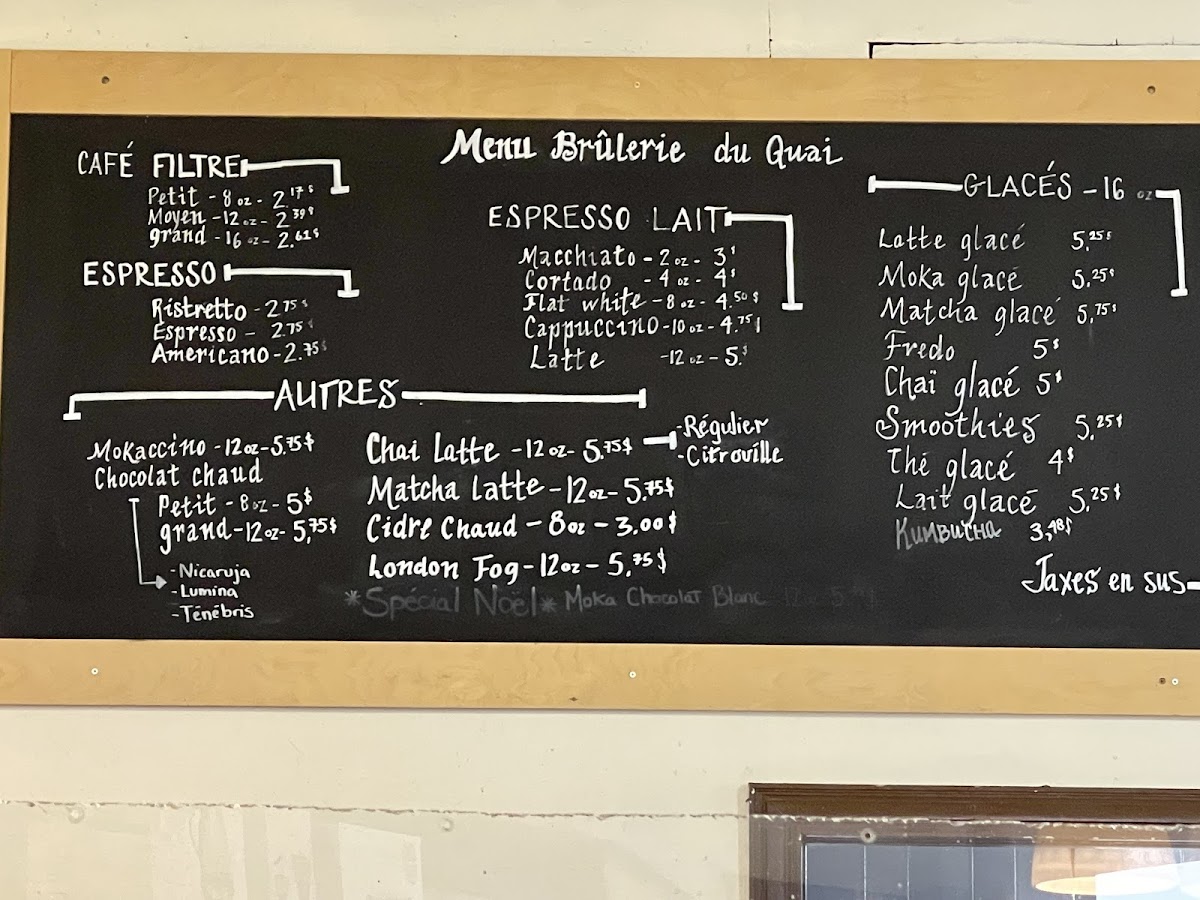 Menu Brûlerie du Quai
CAFÉ FILTRE
Petit - 8 oz - 2.17$
Moyen - 12 oz - 2.39$
grand - 16 oz - 2.61$
ESPRESSO
Ristretto - 2.75$
Espresso - 2.75$
Americano - 2.75$
ESPRESSO LAIT
Macchiato - 2 oz - 3$
Cortado - 4 oz - 4$
Flat white - 8 oz - 4.50$
Cappuccino - 10 oz - 4.75$
Latte - 12 oz - 5.$
AUTRES
Mokaccino - 12oz - 5.75$
Chocolat chaud
Petit - 8 oz - 5$
grand - 12 oz - 5,75$
- Nicaruja
- Lumina
- Ténébris
Chai Latte - 12 oz - 5.75$
- Régulier
- Citroville
Matcha Latte - 12oz - 5.75$
Cidre Chaud - 8oz - 3.00$
London Fog - 12oz - 5.75$
*Spécial Noël* Moka Chocolat Blanc 12 oz 5
GLACÉS - 16 oz
Latte glacé 5,25$
Moka glacé 5,25$
Matcha glacé 5,75$
Fredo 5$
Chaï glacé 5$
Smoothies 5,25$
Thé glacé 4$
Lait glacé 5,25$
KUMBUCHA 3,48$
Taxes en sus